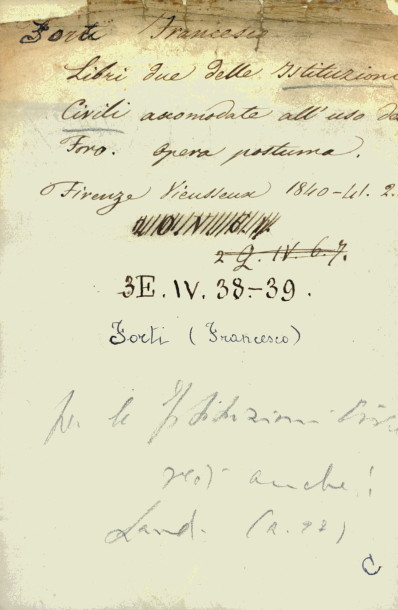 Forti Francesco
Libri due delle Istituzioni
Civili accomodate all'uso de
Foro. Opera postuma.
Firenze Vieusseux 1840-41. 2.
2 Q. IV. 6. 7.
3E. IV. 38-39.
Forti (Francesco)
per le Istituzioni Civi
vedi anche:
Land. (a. 98)
C